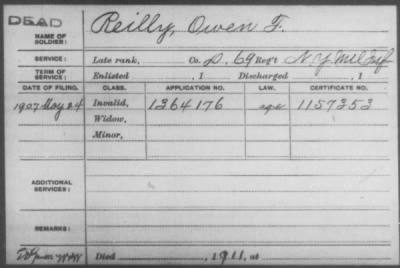 DEAD
NAME OF SOLDIER: Reilly, Owen F.
SERVICE: Late rank, Co. D. 69 Reg't N.Y. Mil Inf
TERM OF SERVICE: Enlisted , 1 Discharged , 1
DATE OF FILING. CLASS. APPLICATION NO. LAW. CERTIFICATE NO.
1907 May 24 Invalid, 1364176 age 1157353
Widow,
Minor,
ADDITIONAL SERVICES:
REMARKS:
Died , 1911, at